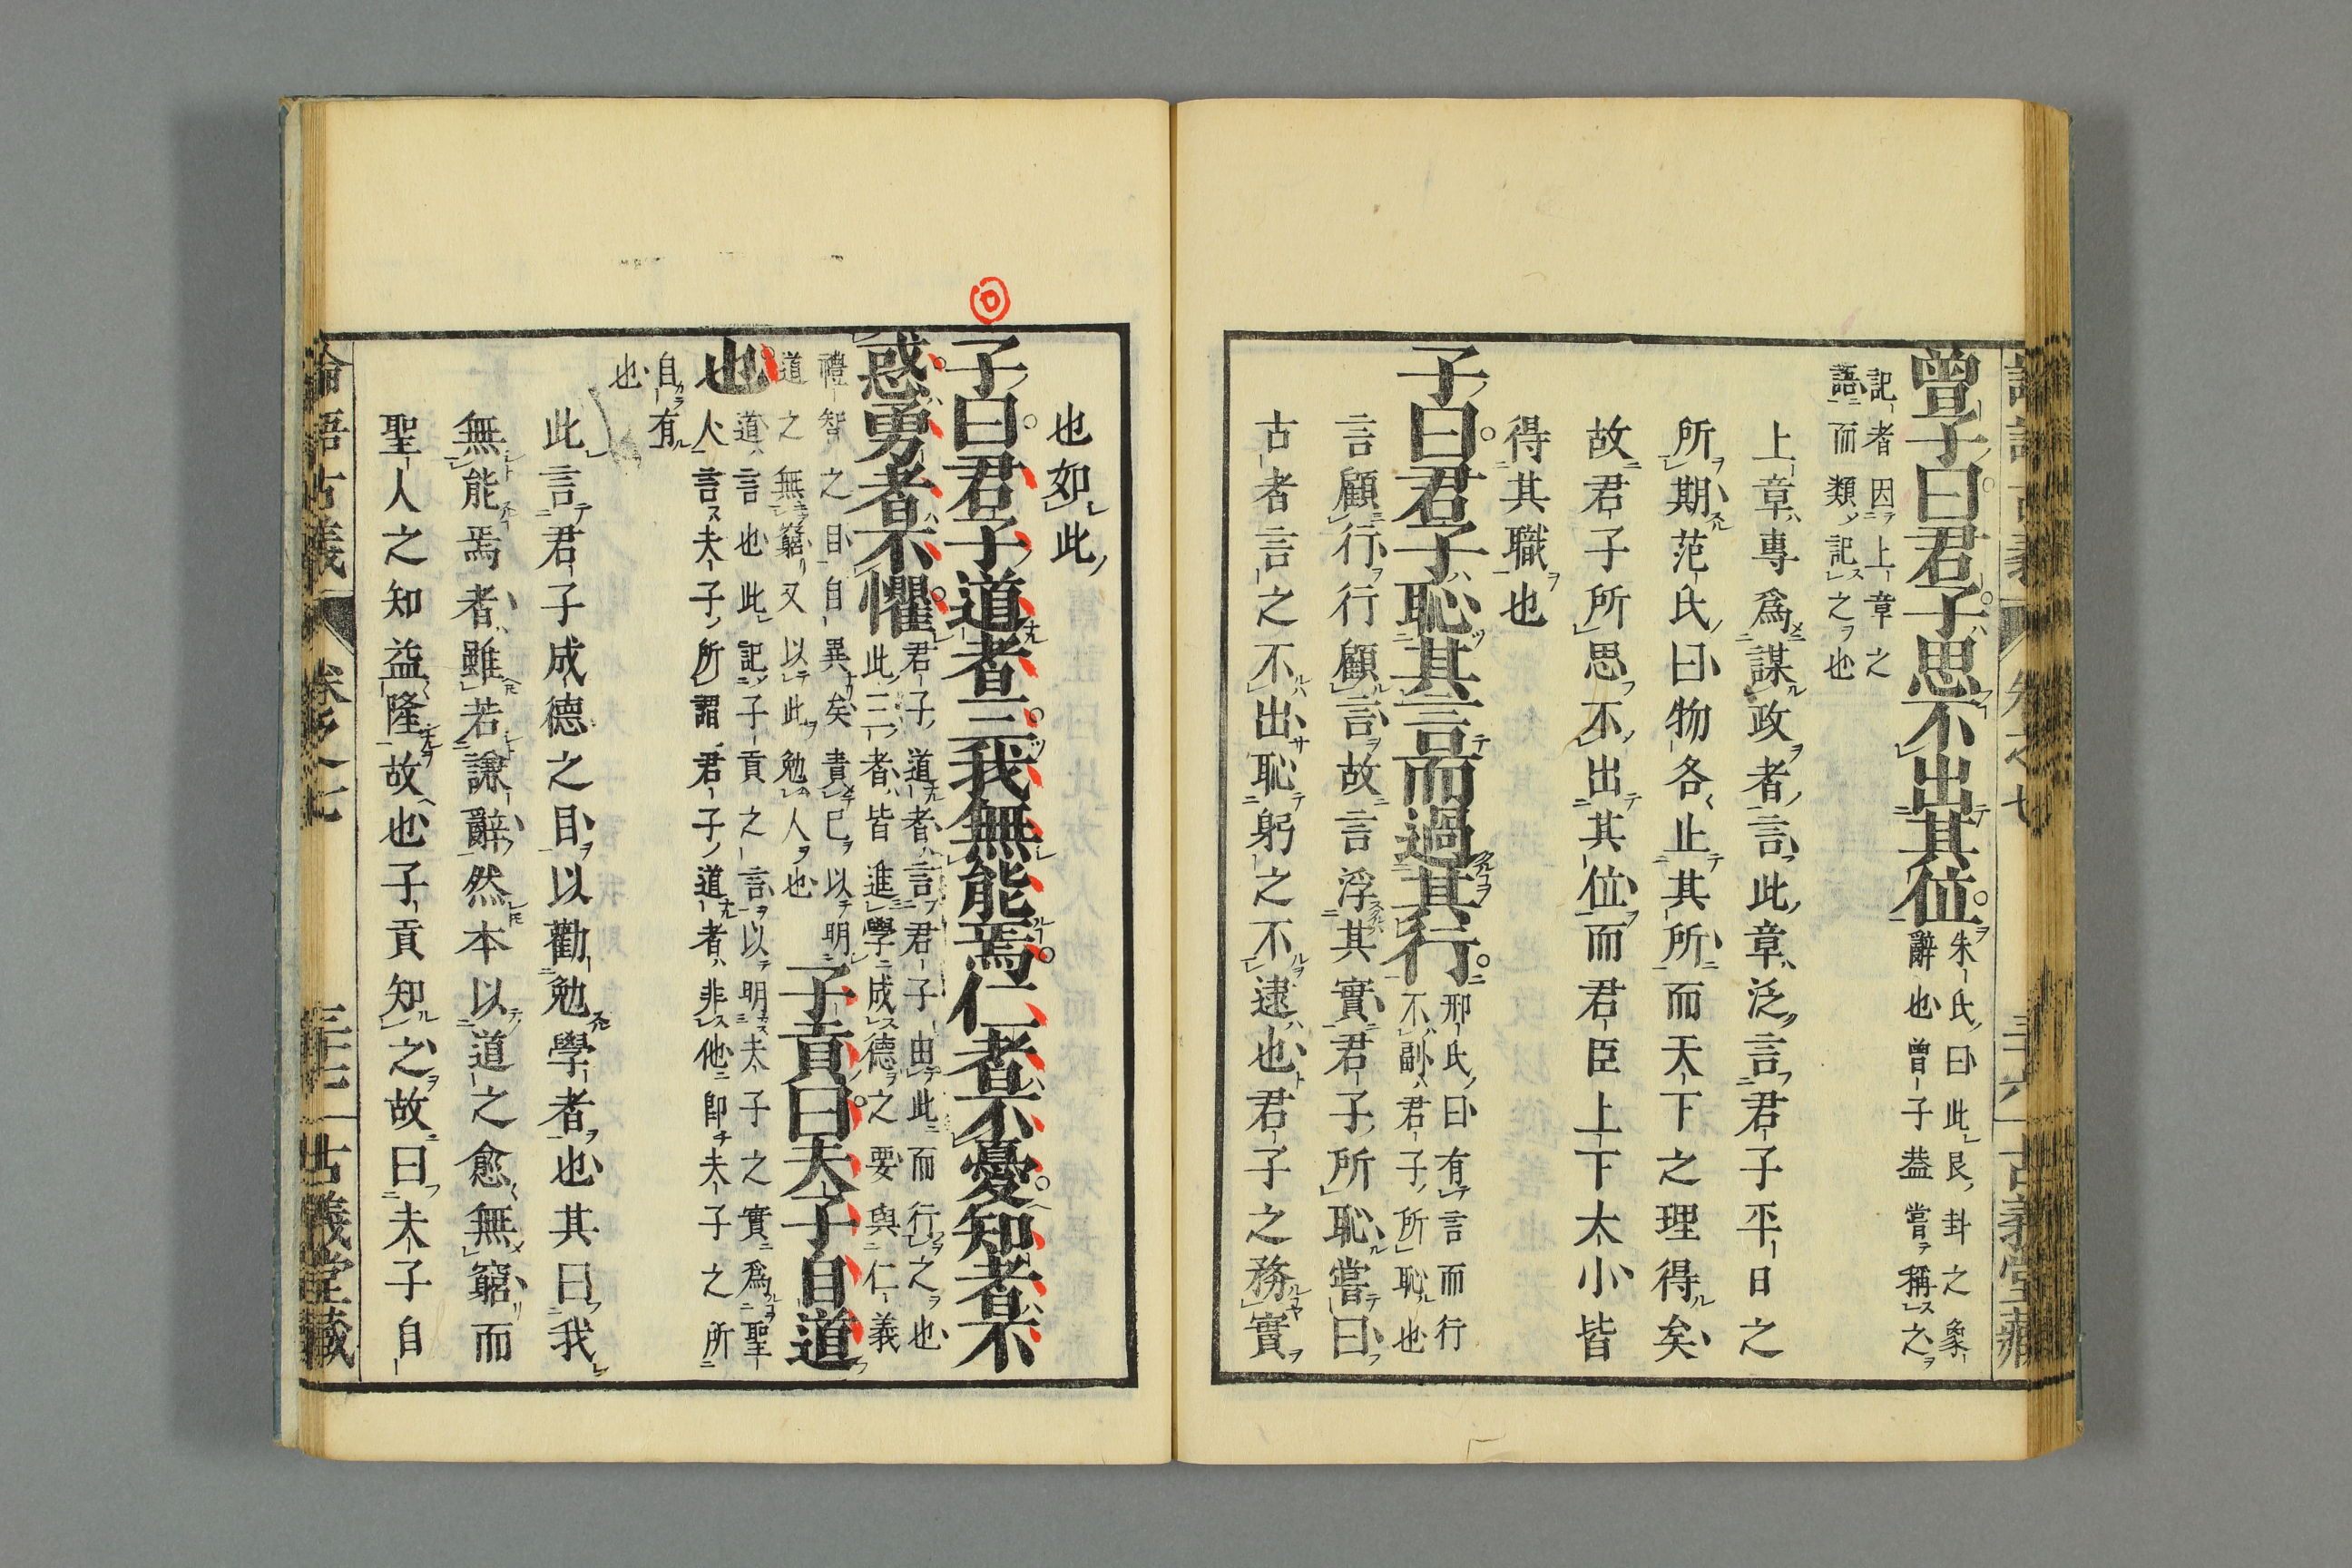 曾子曰君子思不出其位
朱氏曰此艮卦之象
辭也曾子蓋嘗稱之
記者因上章之
語而類記之也
上章專爲謀政者言此章泛言君子平日之
所期范氏曰物各止其所而天下之理得矣
故君子所思不出其位而君臣上下大小皆
得其職也
子曰君子恥其言而過其行
邢氏曰有言而行
不副君子所恥也
言顧行行顧言故言浮其實君子所恥嘗曰
古者言之不出恥躬之不逮也君子之務實
也如此
子曰君子道者三我無能焉仁者不憂知者不
惑勇者不懼
君子道者言君子由此而行之也
此三者皆進學成德之要與仁義
禮智之目自異矣責己以明
道之無窮又以此勉人也
子貢曰夫子自道
也
道言也此記子貢之言以明夫子之實爲聖
人言夫子所謂君子道者非他卽夫子之所
自有
也
此言君子成德之目以勸勉學者也其曰我
無能焉者雖若謙辭然本以道之愈無窮而
聖人之知益隆故也子貢知之故曰夫子自
論語古義
卷之七
三十七
古義堂藏